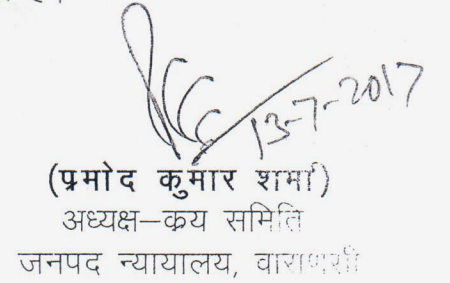 13-7-2017
(प्रमोद कुमार शर्मा)
अध्यक्ष–क्रय समिति
जनपद न्यायालय, वाराणसी